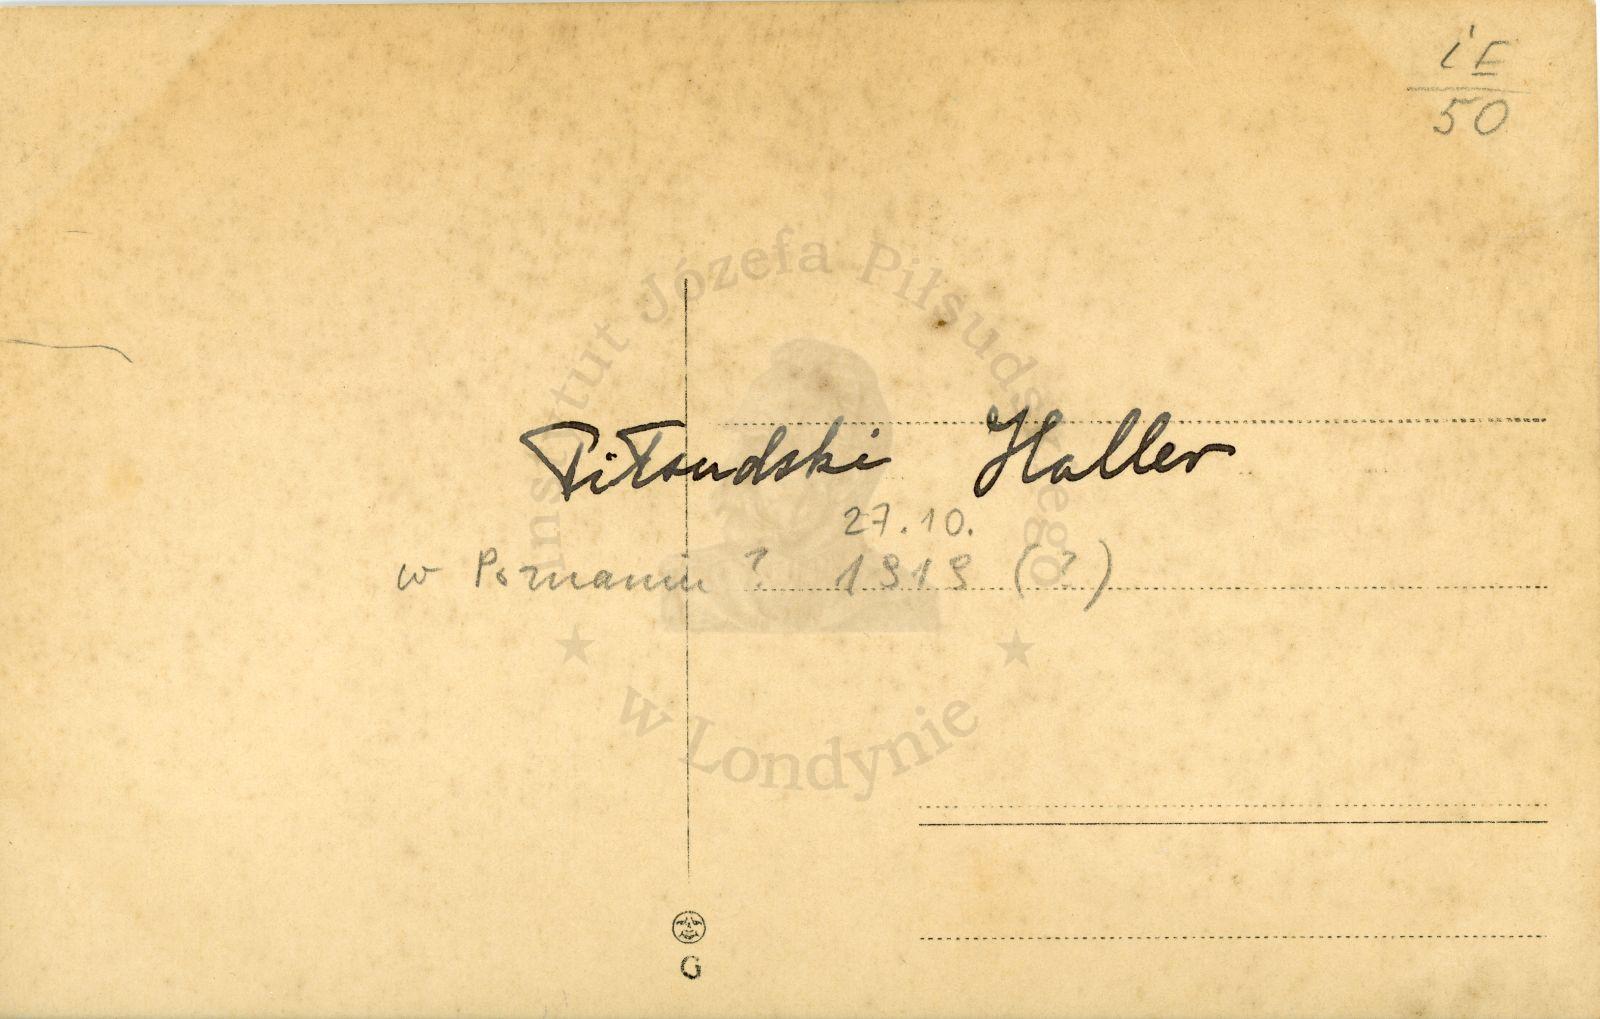 iE
50
Instytut Józefa Piłsudskiego
Piłsudski Haller
27.10.
w Poznaniu ? 1919 (?)
w Londynie
G